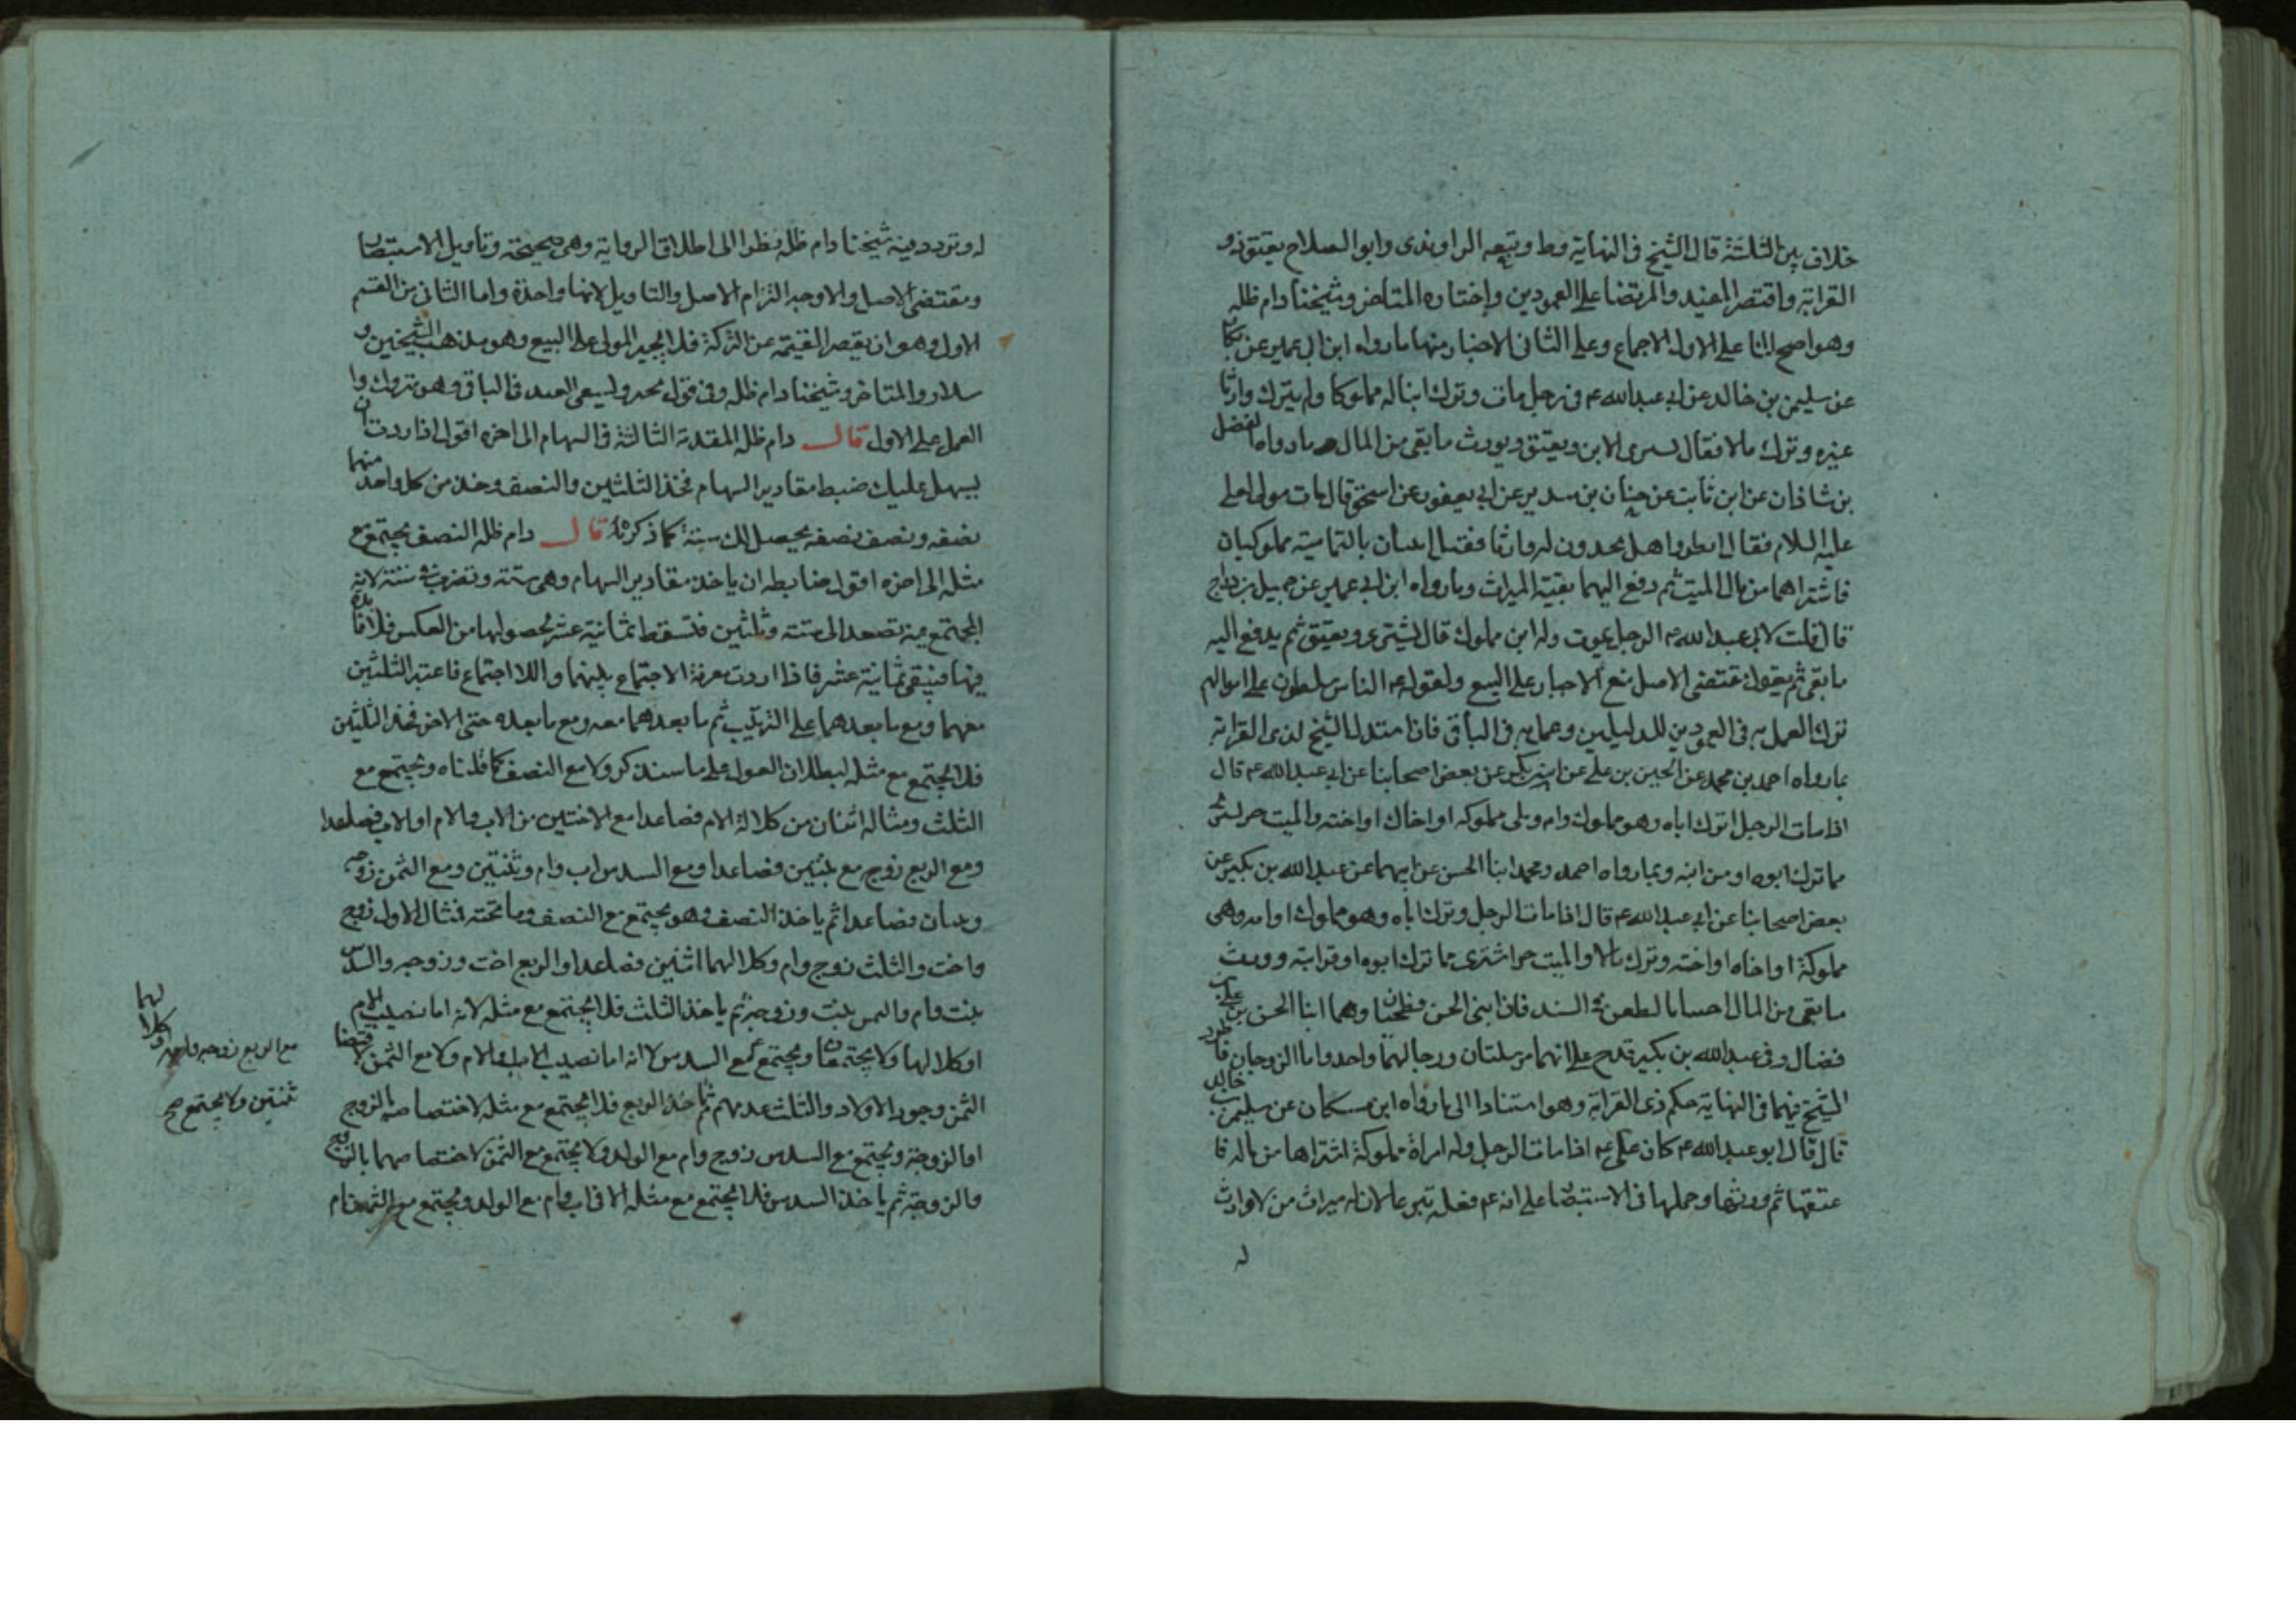 خلاف بين الثلثة قال الشيخ في النهاية وط وتبعه الراوندي وابو الصلاح يعتق ذو
القرابة واقتصر المفيد والمرتضى على العمودين واختاره المتاخر وشيخنا دام ظله
وهو اصح لنا على الاول الاجماع وعلى الثاني الاخبار منها ما رواه ابن ابي عمير عن بكار
عن سليمن بن خالد عن ابي عبد الله ع في رجل مات وترك ابنا له مملوكا ولم يترك وارثا
غيره وترك مالا فقال يشترى الابن ويعتق ويورث ما بقى من المال وما رواه الفضل
بن شاذان عن ابن ثابت عن حنان بن سدير عن ابي يعفور عن اسحق قال مات مولى لعلي
عليه السلام فقال انظروا هل تجدون له وارثا فقيل ابنتان باليمامة مملوكتان
فاشتراهما من مال الميت ثم دفع اليهما بقية الميراث وما رواه ابن ابي عمير عن جميل بن دراج
قال قلت لابي عبد الله ع الرجل يموت وله ابن مملوك قال يشترى ويعتق ثم يدفع اليه
ما بقى ثم يقول مقتضى الاصل منع الاجبار على البيع ولقوله ع الناس مسلطون على اموالهم
ترك العمل به في العمودين للدليلين وعمل به في الباقي فان استدل الشيخ لذي القرابة
بما رواه احمد بن محمد عن الحسين بن علي عن ابن بكير عن بعض اصحابنا عن ابي عبد الله ع قال
اذا مات الرجل وترك اباه وهو مملوك وام وهي مملوكه او اخاك او اخته والميت حر اشترى
مما ترك ابوه او من ابنه وبما رواه احمد ومحمد ابنا الحسن عن ابيهما عن عبد الله بن بكير عن
بعض اصحابنا عن ابي عبد الله ع قال اذا مات الرجل وترك اباه وهو مملوك او امه وهي
مملوكة او اخاه او اخته وترك مالا والميت حر اشترى مما ترك ابوه او قرابته وورث
ما بقى من المال اجبنا بالطعن في السند فان ابني الحسن فطحيان وهما ابنا الحسن بن علي بن
فضال وفي عبد الله بن بكير قدح على انهما مرسلتان ورجالهما واحد واما الزوجان فاورد
الشيخ فيهما في النهاية حكم ذي القرابة وهو استنادا الى ما رواه ابن مسكان عن سليمن بن خالد
قال قال ابو عبد الله ع كان علي ع اذا مات الرجل وله امراة مملوكة اشتراها من ماله فا
عتقها ثم ورثها وحملها في الاستبصار على انه ع فعله تبرعا لان له ميراث من لا وارث
له
له وتردد فيه شيخنا دام ظله نظرا الى اطلاق الرواية وهي صحيحة وتاويل الاستبصار
ومقتضى الاصل والاوجه التزام الاصل والتاويل لانها واحدة واما الثاني من القسم
الاول وهو ان يقصر القيمة عن التركة فلا يجبر المولى على البيع وهو مذهب الشيخين و
سلار والمتاخر وشيخنا دام ظله وفي قول يجبر ويسعى العبد في الباقي وهو متروك وا
العمل على الاول قال دام ظله المقدمة الثالثة في السهام الى اخره اقول اذا اردت ان
يسهل عليك ضبط مقادير السهام فخذ الثلثين والنصف وخذ من كل واحد منهما
نصفه ونصف نصفه يحصل لك ستة كما ذكرناه قال دام ظله النصف يجتمع مع
مثله الى اخره اقول ضابطه ان ياخذ مقادير السهام وهي ستة وتضرب في ستة لانه
المجتمع مع مثله تصعد الى ستة وثلثين فتسقط ثمانية عشر لحصولها من العكس فلا فائدة
فيها فيبقى ثمانية عشر فاذا اردت معرفة الاجتماع بينهما واللا اجتماع فاعتبر الثلثين
معهما ومع ما بعدهما على الترتيب ثم ما بعدهما معه ومع ما بعده حتى الاخر فخذ الثلثين
فلا يجتمع مع مثله لبطلان العول على ما سنذكر ولا مع النصف كما قلناه ويجتمع مع
الثلث ومثاله اثنان من كلالة الام فصاعدا مع الاختين من الاب والام او الاب فصاعدا
ومع الربع زوج مع بنتين فصاعدا ومع السدس اب وام وبنتين ومع الثمن زوجه
وبنتان فصاعدا ثم ياخذ النصف وهو يجتمع مع النصف وما تحته فمثال الاول زوج
واخت والثلث زوج وام وكلالهما اثنين فصاعدا والربع اخت وزوجه والسدس
بنت وام والثمن بنت وزوجة ثم ياخذ الثلث فلا يجتمع مع مثله لانه اما نصيب الام
او كلالها ولا يجتمعان ويجتمع مع السدس لانه اما نصيب الاب والام ولا مع الثمن لاقتضا
الثمن وجود الاولاد والثلث عدمهم ثم ناخذ الربع فلا يجتمع مع مثله لاختصاصه بالزوج
او الزوجة ويجتمع مع السدس زوج وام مع الولد ولا يجتمع مع الثمن لاختصاصهما بالزوج
والزوجة ثم ياخذ السدس فلا يجتمع مع مثله الا في اب وام مع الولد ويجتمع مع الثمن ام
لهما
وكلا
مع الربع زوجه وام
ثنتين ولا يجتمع صح